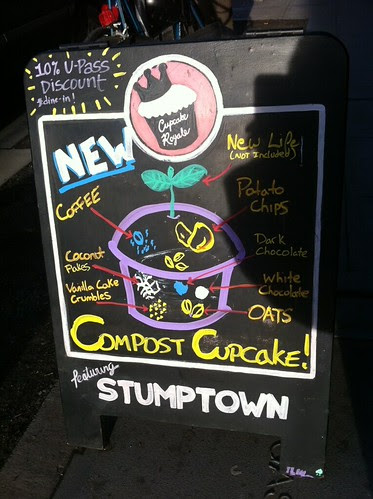 10% U-Pass
Discount
@dine-in!
Cupcake
Royale
NEW
New Life
(NOT Included)
COFFEE
Potato
Chips
Dark
Chocolate
Coconut
Flakes
White
Chocolate
Vanilla Cake
Crumbles
OATS
COMPOST CUPCAKE!
featuring
STUMPTOWN